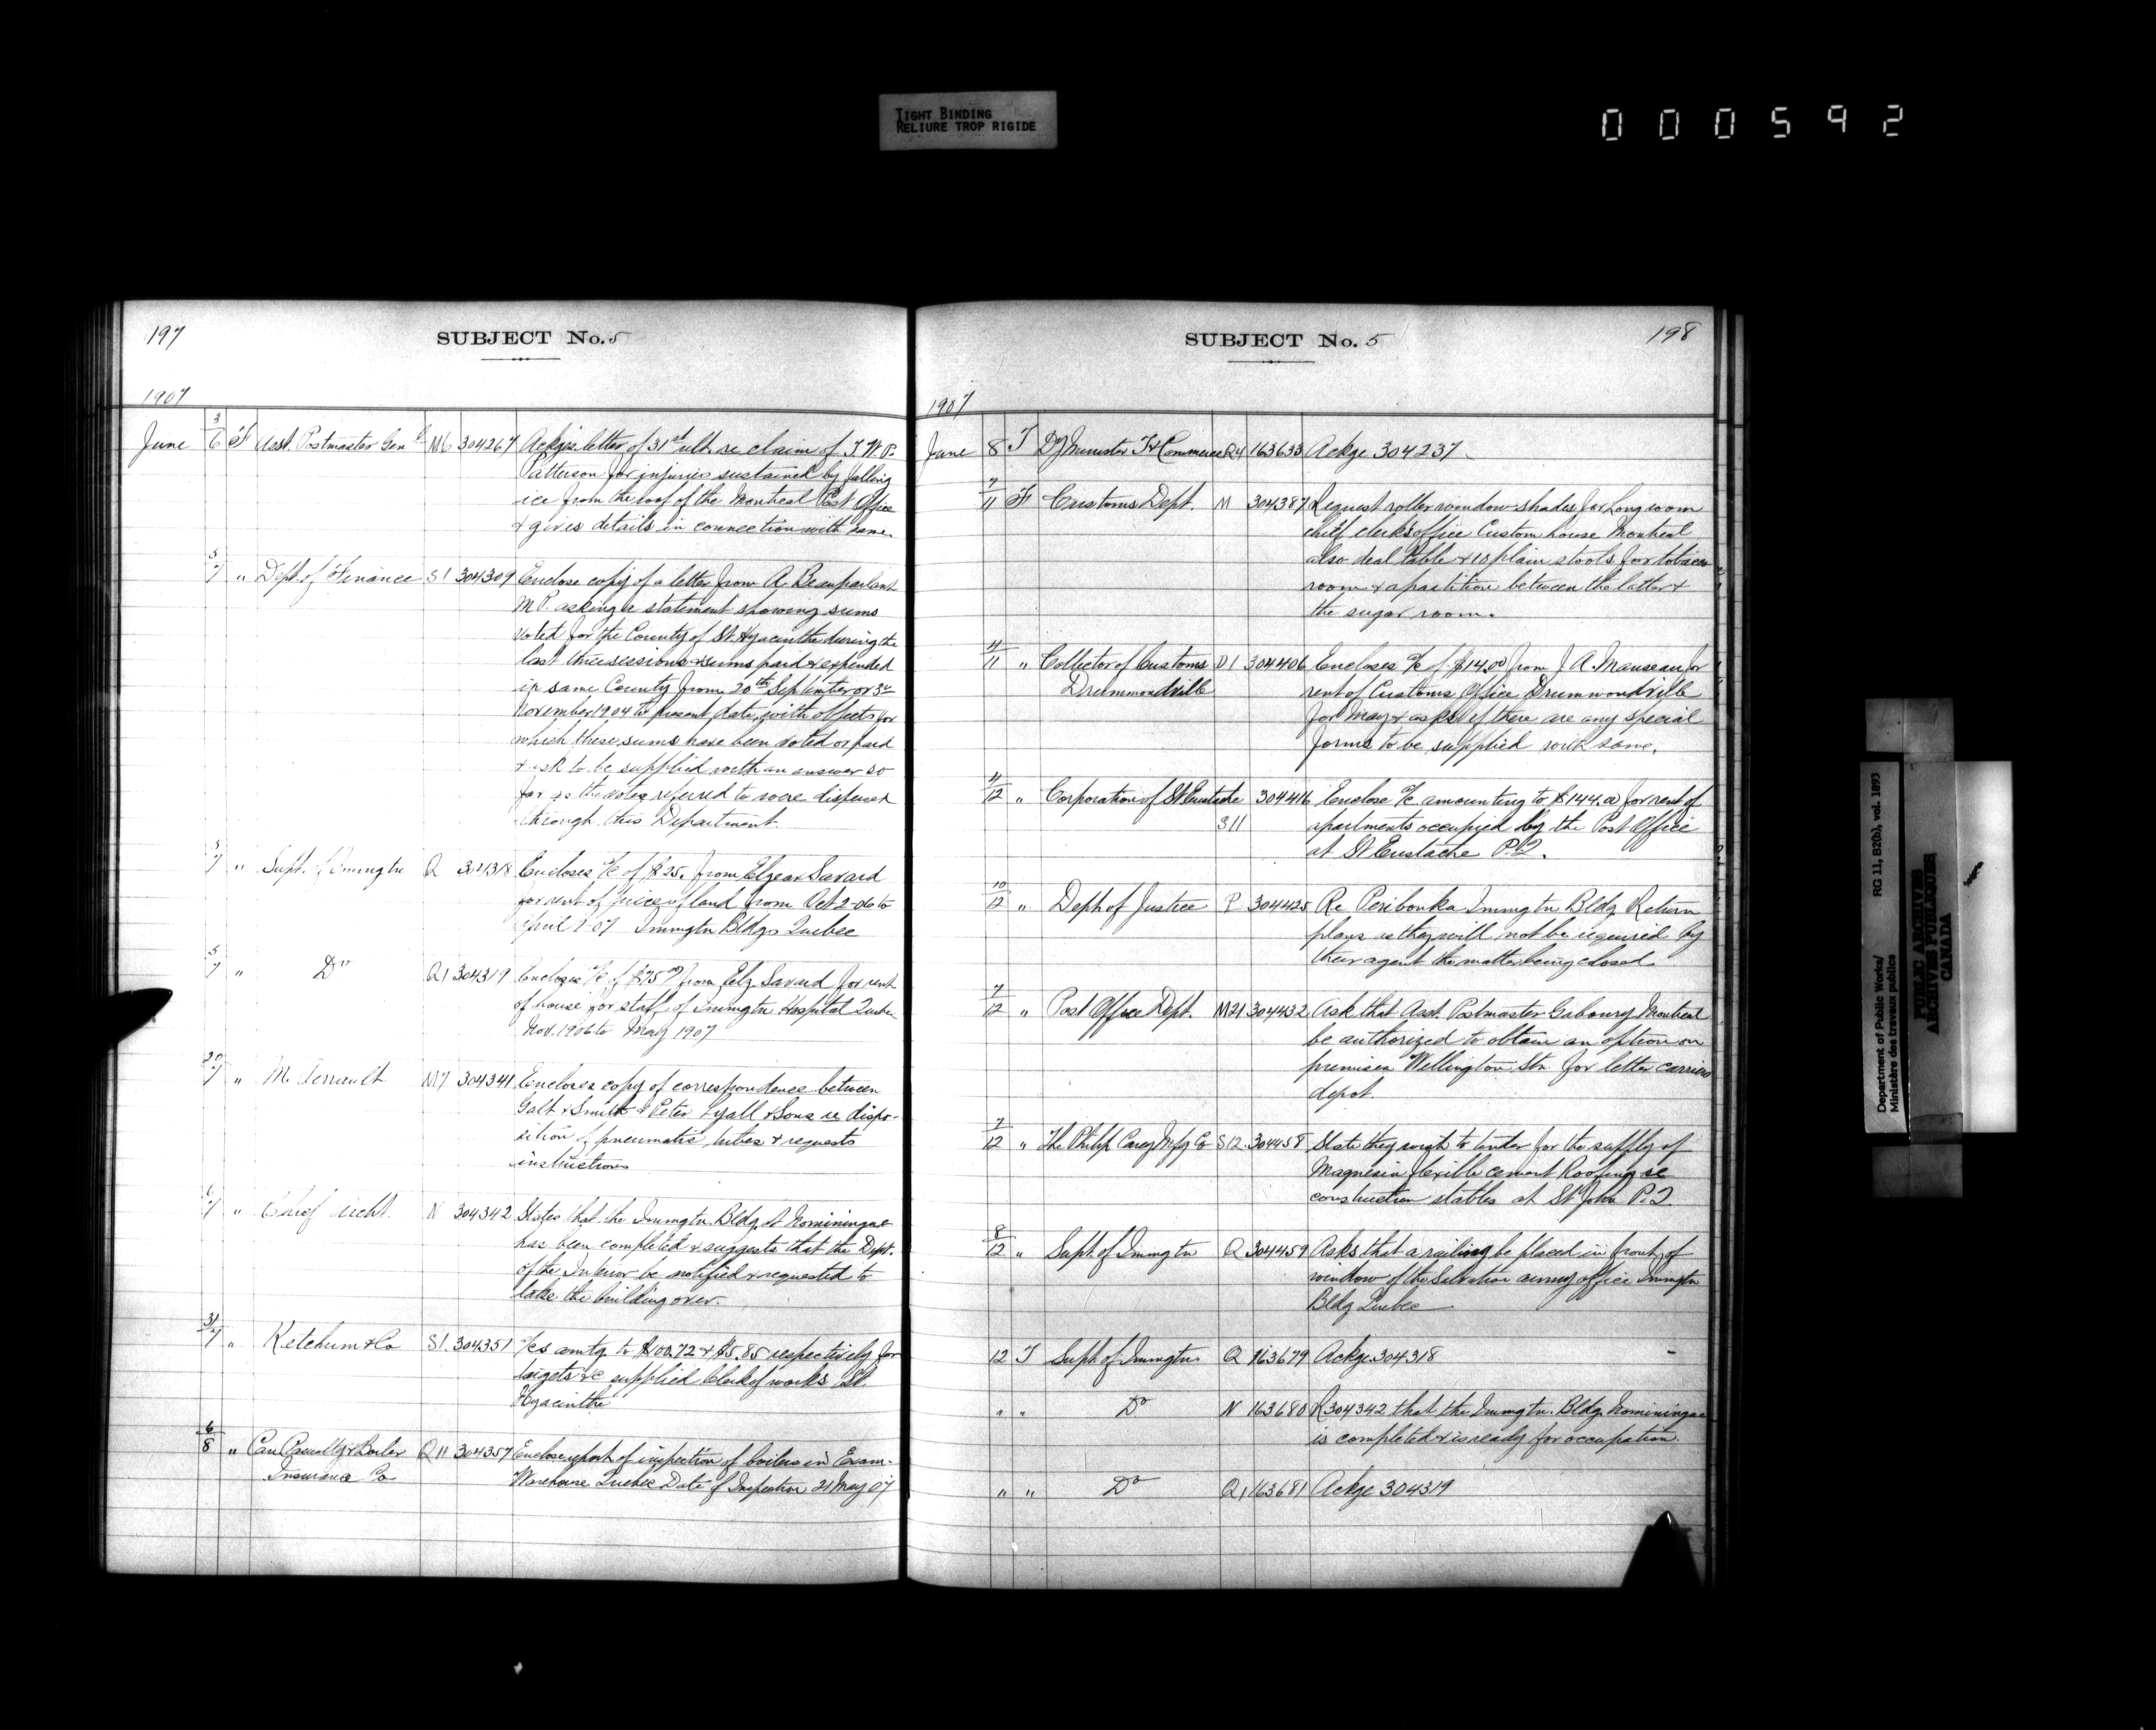 TIGHT BINDING
RELIURE TROP RIGIDE
000592
197
SUBJECT No. 5
1907
June 3/6 F Asst. Postmaster Genl M6 304267 Ackgs. letter of 31st ult. re claim of T. W. P.
Patterson for injuries sustained by falling
ice from the roof of the Montreal Post Office
& gives details in connection with same.
5/7 " Dept. of Finance S1 304309 Enclose copy of a letter from A. Beauparlant
M.P. asking a statement showing sums
voted for the County of St. Hyacinthe during the
last three sessions & sums paid & expended
in same County from 20th September or 3rd
November 1904 to present date, with objects for
which these sums have been voted or paid
& ask to be supplied with an answer so
far as the votes referred to were dispensed
through this Department.
5/7 " Supt. of Immigtn Q 304318 Encloses a/c of $25. from Elzear Savard
for rent of piece of land from Oct 2-06 to
April 1-07 Immgtn Bldgs Quebec
5/7 " Do Q1 304319 Encloses a/c of $75.00 from Elz. Savard for rent
of house for staff of Immgtn Hospital Quebec
Nov. 1906 to May 1907
M. Perrault M7 304341 Encloses copy of correspondence between
Galt & Smith & Peter Lyall & Sons re dispo-
sition of pneumatic tubes & requests
instructions
6/7 " Chief Archt. N 304342 States that the Immgtn. Bldg. at Nominingue
has been completed & suggests that the Dept.
of the Interior be notified & requested to
take the building over.
31/7 " Ketchum & Co S1 304351 a/cs amtg. to $100.72 & $5.85 respectively for
targets &c supplied Clerk of works St.
Hyacinthe
6/8 " Can Casualty & Boiler Q11 304357 Enclose report of inspection of boilers in Exam.
Insurance Co Warehouse Quebec Date of Inspection 21 May 07
SUBJECT No. 5
198
1907
June 8 T Dy Minister T & Commerce Q4 163633 Ackge 304237
7/11 F Customs Dept. M 304387 Request roller window shades for Long room
chief clerks office Custom house Montreal
also deal table & 10 plain stools for tobacco
room & a partition between the latter &
the sugar room.
4/11 " Collector of Customs D1 304406 Encloses a/c of $14.00 from J. A. Manseau for
Drummondville rent of Customs Office Drummondville
for May & asks if there are any special
forms to be supplied with same.
4/12 " Corporation of St Eustache 304416 Enclose a/c amounting to $144.00 for rent of
S11 apartments occupied by the Post Office
at St Eustache P.Q.
10/12 " Dept. of Justice P 304425 Re Peribonka Immgtn Bldg Return
plans as they will not be required by
their agent the matter being closed.
7/12 " Post Office Dept. M21 304432 Ask that Asst. Postmaster Gaboury Montreal
be authorized to obtain an option on
premises Wellington Str. for letter carriers
depot.
7/12 " The Philip Carey Mfg Co S12 304458 State they wish to tender for the supply of
Magnesia flexible cement Roofing re
construction stables at St John P.Q.
8/12 " Supt. of Immgtn Q 304459 Asks that a railing be placed in front of
window of the Salvation army office Immgtn
Bldg Quebec
12 T Supt. of Immgtn. Q 163679 Ackge. 304318
" " Do N 163680 R 304342 that the Immgtn. Bldg. Nominingue
is completed & is ready for occupation.
" " Do Q1 163681 Ackge 304319
Department of Public Works/ RG 11, B2(b), vol. 1893
Ministère des travaux publics
PUBLIC ARCHIVES
ARCHIVES PUBLIQUES
CANADA